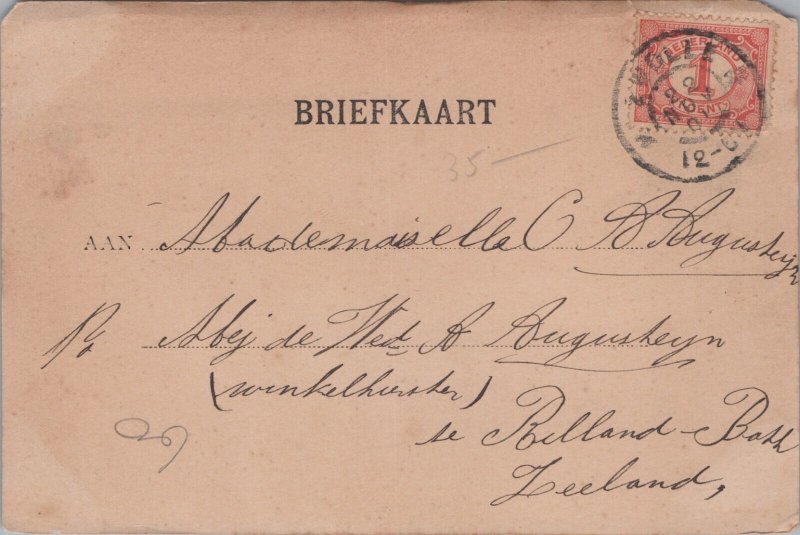 NEDERLAND
1
CENT
ZWOLLE
12-
BRIEFKAART
35-
AAN Mademoiselle C A Augusteyn
Po Abij de Wed A Augusteyn
(winkelhierster)
te Rilland-Bath
Zeeland,